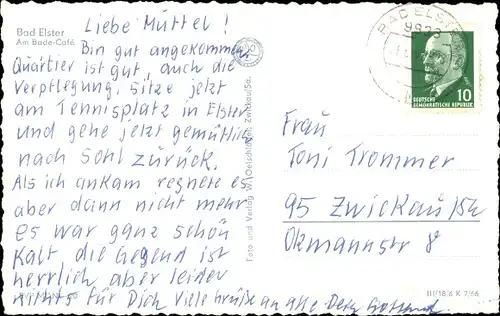 Bad Elster
Am Bade-Café
Liebe Muttel!
Bin gut angekommen,
Quartier ist gut, auch die
Verpflegung. Sitze jetzt
am Tennisplatz in Elster
und gehe jetzt gemütlich
nach Sohl zurück.
Als ich ankam regnete es
aber dann nicht mehr
es war ganz schön
kalt die Gegend ist
herrlich aber leider
nichts für Dich Viele Grüße an alle Dein
Foto und Verlag W. Oelschlägel, Zwickau/Sa.
BAD ELSTER
9933
DEUTSCHE
DEMOKRATISCHE REPUBLIK
10
Frau
Toni Trommer
95 Zwickau/Sa
Okmannstr 8
III/18/6 K 7/66